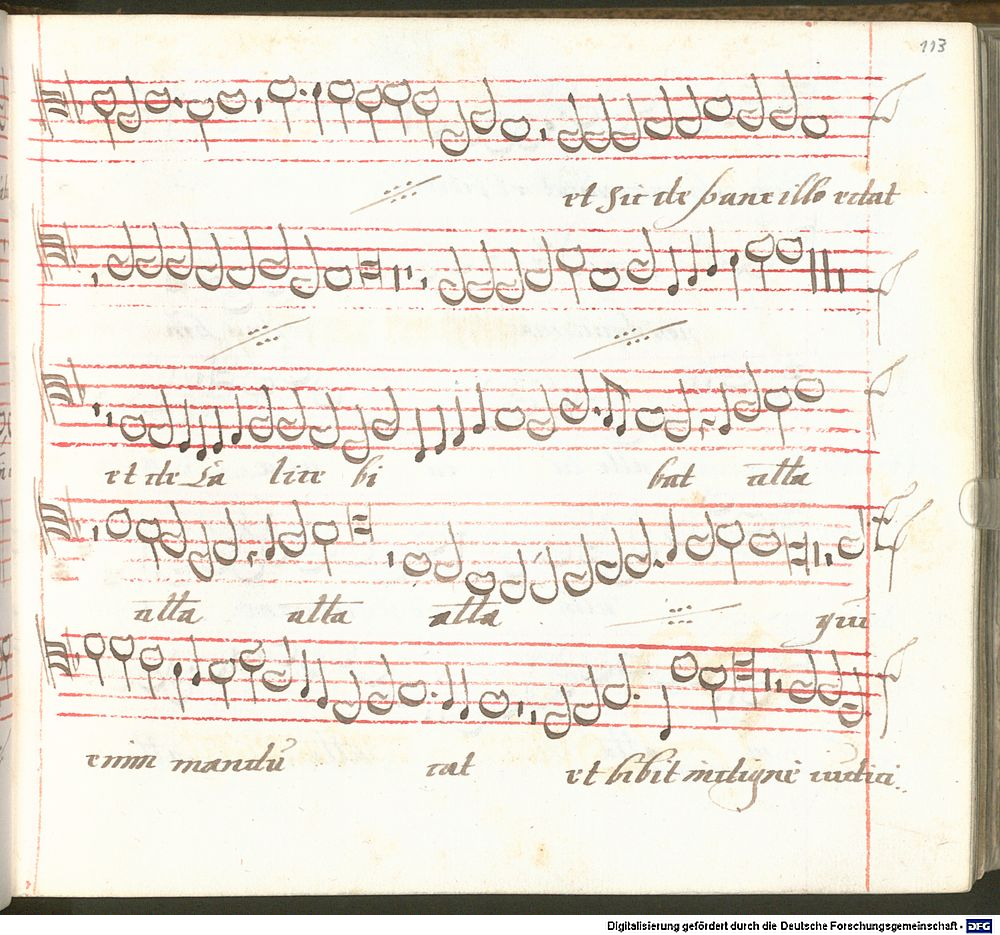 113
et sic de pane illo edat
et de Ca lice bi bat alla
alla alla alla qui
enim mandu cat et bibit indigne iudici
Digitalisierung gefördert durch die Deutsche Forschungsgemeinschaft - DFG